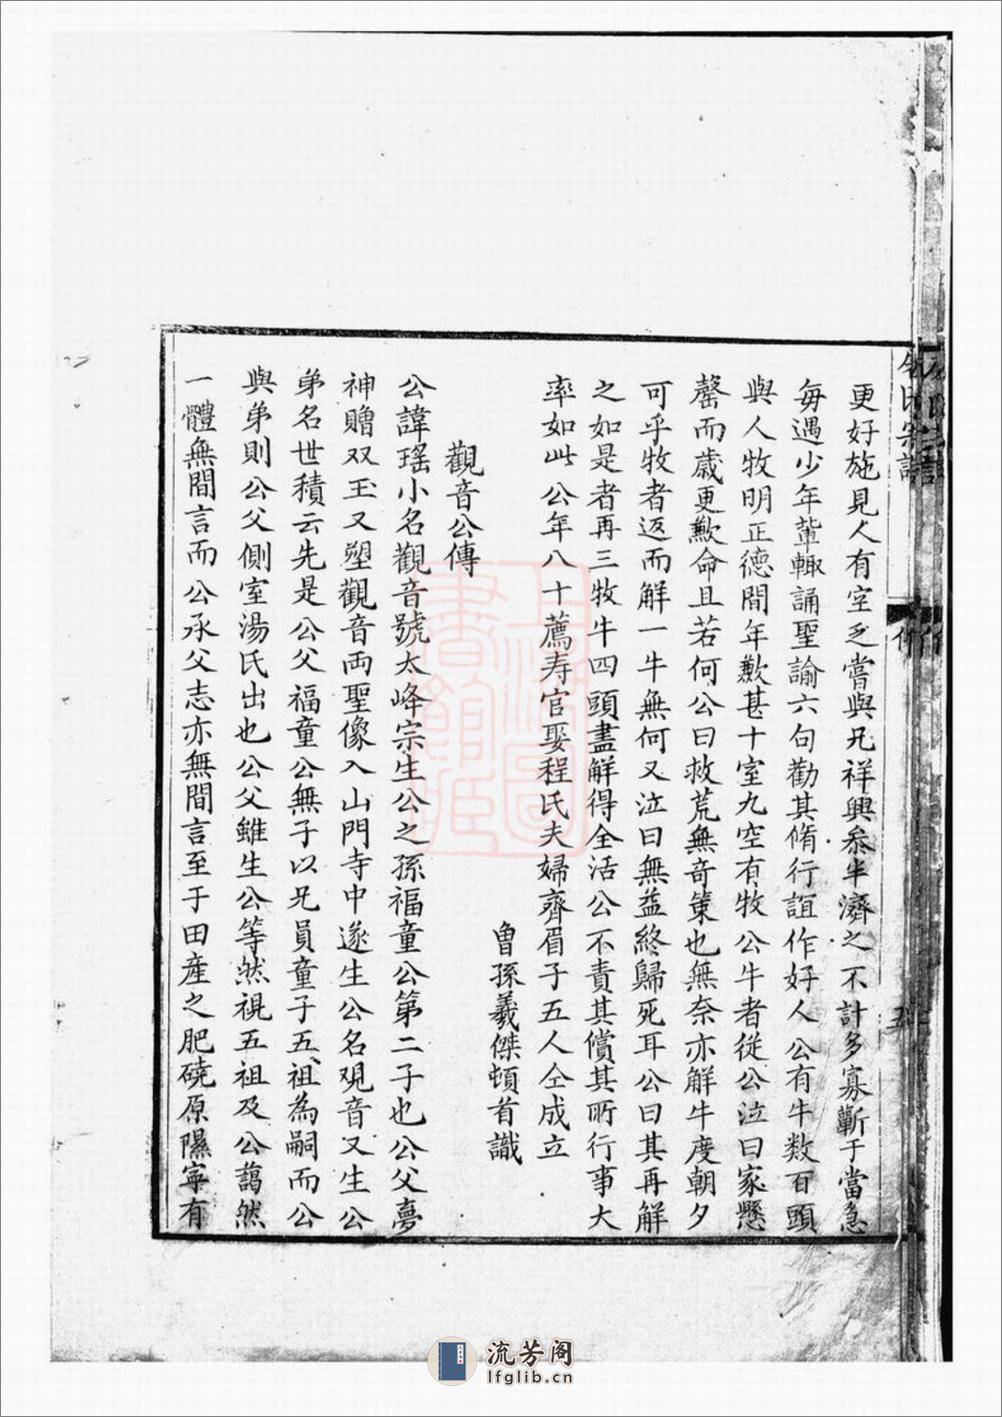 更好施見人有室乏嘗與兄祥興叅半濟之不計多寡斬于當急
每遇少年輩輙誦聖諭六句勸其脩行誼作好人公有牛数百頭
與人牧明正德間年歉甚十室九空有牧公牛者從公泣曰家懸
罄而歲更歉命且若何公曰救荒無奇策也無奈亦解牛度朝夕
可乎牧者返而解一牛無何又泣曰無益終歸死耳公曰其再解
之如是者再三牧牛四頭盡解得全活公不責其償其所行事大
率如此公年八十薦寿官娶程氏夫婦齊眉子五人仝成立
曽孫羲傑頓首識
觀音公傳
公諱瑤小名觀音號大峰宗生公之孫福童公第二子也公父夢
神贈双玉又塑觀音両聖像入山門寺中遂生公名覌音又生公
弟名世積云先是公父福童公無子以兄員童子五祖為嗣而公
與弟則公父側室湯氏出也公父雖生公等然視五祖及公藹然
一體無間言而公承父志亦無間言至于田産之肥磽原隰寧有
上海圖
書館藏
流芳阁
lfglib.cn